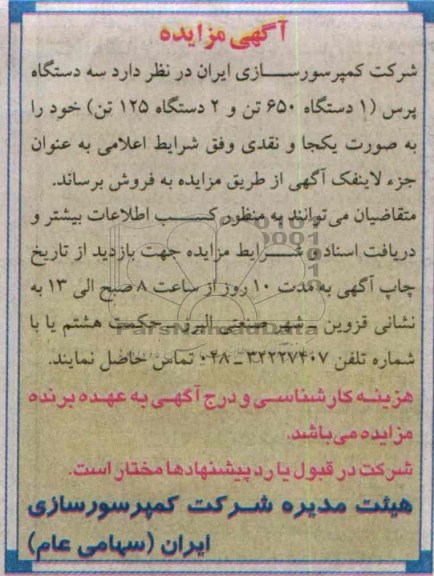 آگهی مزایده
شرکت کمپرسورسازی ایران در نظر دارد سه دستگاه
پرس (۱ دستگاه ۶۵۰ تن و ۲ دستگاه ۱۲۵ تن) خود را
به صورت یکجا و نقدی وفق شرایط اعلامی به عنوان
جزء لاینفک آگهی از طریق مزایده به فروش برساند.
متقاضیان می‌توانند به منظور کسب اطلاعات بیشتر و
دریافت اسناد و شرایط مزایده جهت بازدید از تاریخ
چاپ آگهی به مدت ۱۰ روز از ساعت ۸ صبح الی ۱۳ به
نشانی قزوین - شهر صنعتی البرز - حکمت هشتم یا با
شماره تلفن ۳۲۲۲۷۴۰۷ - ۰۲۸ تماس حاصل نمایند.
هزینه کارشناسی و درج آگهی به عهده برنده
مزایده می‌باشد.
شرکت در قبول یا رد پیشنهادها مختار است.
هیئت مدیره شرکت کمپرسورسازی
ایران (سهامی عام)
ParsNamadData